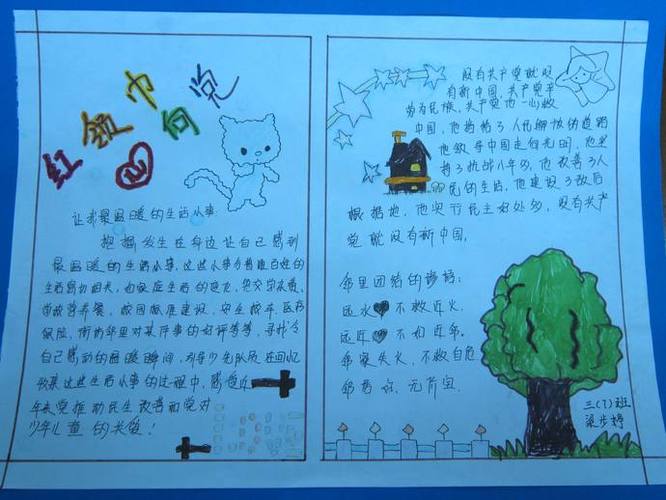 红领巾心向党
让我最温暖的生活小事:
把握发生在身边让自己感到
最温暖的生活小事,这些小事与普通百姓的
生活密切相关,如家庭生活的变化,免交学杂费、
营养餐,校园标准建设,安全校车,医疗
保险,街坊邻里对某件事的好评等等,寻找令
自己感动的温暖瞬间,引导少先队员在回忆
收集这些生活小事的过程中,感受近
年来党推动民生改善和党对
少年儿童的关爱!
没有共产党就没
有新中国,共产党辛
劳为民族,共产党他一心救
中国,他指给了人民解放的道路
他领导中国走向光明,他坚
持了抗战八年多,他改善了人
民的生活,他建设了敌后
根据地,他实行民主好处多,没有共产
党就没有新中国。
邻里团结的谚语:
远水 不救近火。
远近 不如近邻。
邻家失火,不救自危
邻居好,无价宝。
三(7)班
梁步婷